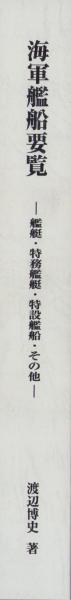 海軍艦船要覧
―艦艇・特務艦艇・特設艦船・その他―
渡辺博史 著